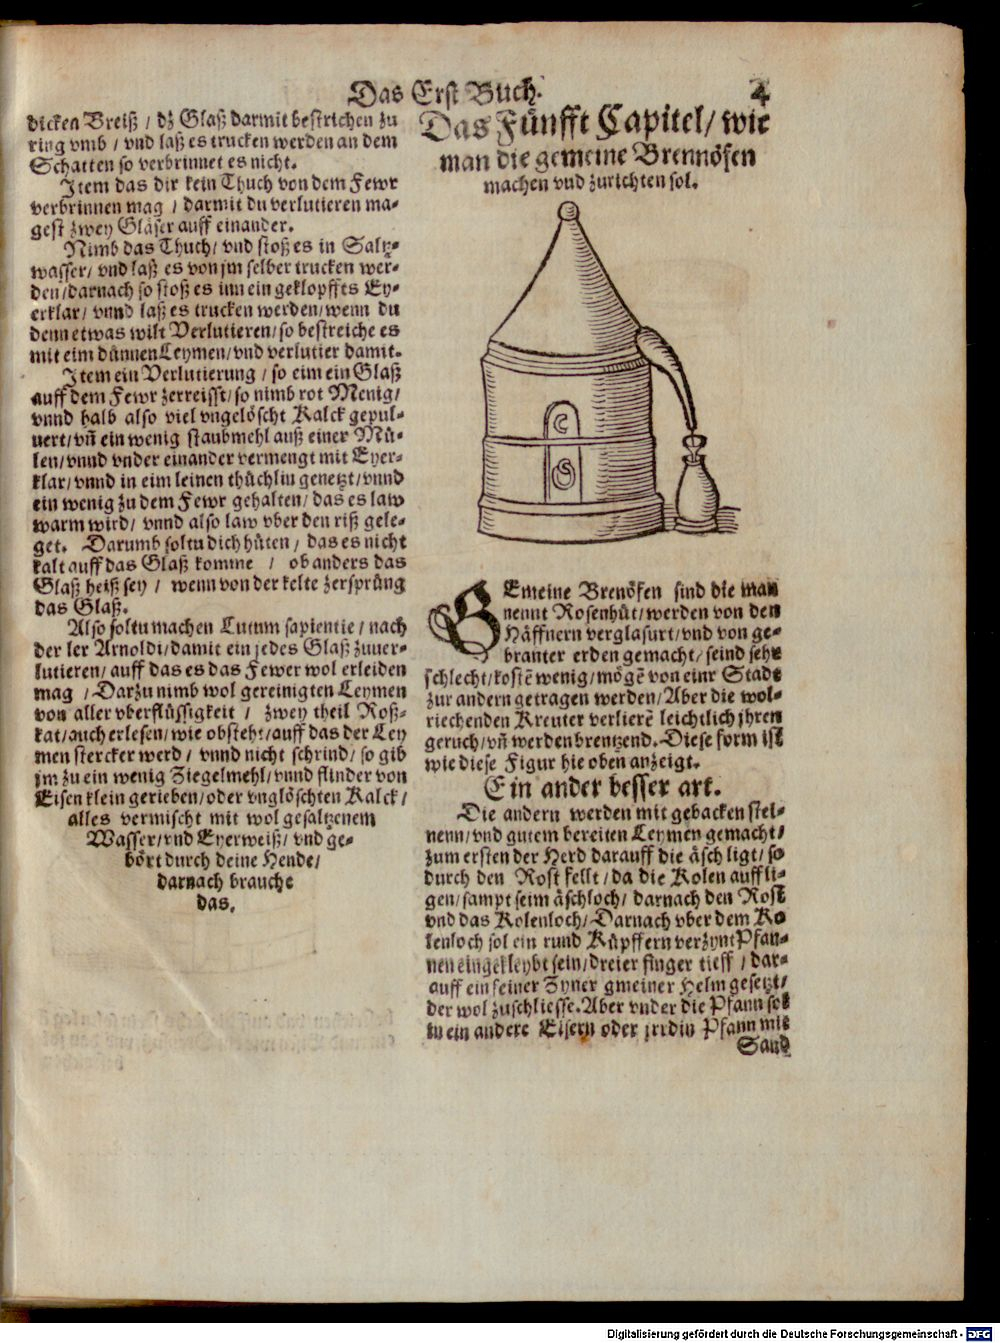 Das Erst Buch. 4
dicken Breiß / dz Glaß darmit bestrichen zu
ring vmb / vnd laß es trucken werden an dem
Schatten so verbrinnet es nicht.
Item das dir kein Thuch von dem Fewr
verbrinnen mag / darmit du verlutieren ma-
gest zwey Gläser auff einander.
Nimb das Thuch / vnd stoß es in Saltz-
wasser / vnd laß es von jm selber trucken wer-
den / darnach so stoß es inn ein geklopffts Ey-
erklar / vnnd laß es trucken werden / wenn du
denn etwas wilt Verlutieren / so bestreiche es
mit eim dünnen Leymen / vnd verlutier damit.
Item ein Verlutierung / so eim ein Glaß
auff dem Fewr zerreisst / so nimb rot Menig /
vnnd halb also viel vngelöscht Kalck gepul-
uert / vñ ein wenig staubmehl auß einer Mü-
len / vnnd vnder einander vermengt mit Eyer-
klar / vnnd in eim leinen thüchlin genetzt / vnnd
ein wenig zu dem Fewr gehalten / das es law
warm wird / vnnd also law vber den riß gele-
get. Darumb soltu dich hüten / das es nicht
kalt auff das Glaß komme / ob anders das
Glaß heiß sey / wenn von der kelte zersprüng
das Glaß.
Also soltu machen Lutum sapientie / nach
der ler Arnoldi / damit ein jedes Glaß zuuer-
lutieren / auff das es das Fewer wol erleiden
mag / Darzu nimb wol gereinigten Leymen
von aller vberflüssigkeit / zwey theil Roß-
kat / auch erlesen / wie obsteht / auff das der Ley
men stercker werd / vnnd nicht schrind / so gib
jm zu ein wenig Ziegelmehl / vnnd flinder von
Eisen klein gerieben / oder vnglöschten Kalck /
alles vermischt mit wol gesaltzenem
Wasser / vnd Eyerweiß / vnd ge-
bört durch deine Hende /
darnach brauche
das.
Das Fünfft Capitel / wie
man die gemeine Brennöfen
machen vnd zurichten sol.
GEmeine Brenöfen sind die man
nennt Rosenhüt / werden von den
Häffnern verglasurt / vnd von ge-
branter erden gemacht / seind sehr
schlecht / kostē wenig / mögē von einr Stadt
zur andern getragen werden / Aber die wol-
riechenden Kreuter verlierē leichtlich jhren
geruch / vñ werden brentzend. Diese form ist
wie diese Figur hie oben anzeigt.
Ein ander besser art.
Die andern werden mit gebacken stei-
nenn / vnd gutem bereiten Leymen gemacht /
zum ersten der Herd darauff die äsch ligt / so
durch den Rost fellt / da die Kolen auff li-
gen / sampt seim äschloch / darnach den Rost
vnd das Kolenloch / Darnach vber dem Ko
lenloch sol ein rund Küpffern verzynt Pfan-
nen eingekleybt sein / dreier finger tieff / dar-
auff ein feiner Zyner gmeiner Helm gesetzt /
der wol zuschliesse. Aber vnder die Pfann sol
tu ein andere Eisern oder jrrdin Pfann mit
Sand
Digitalisierung gefördert durch die Deutsche Forschungsgemeinschaft - DFG